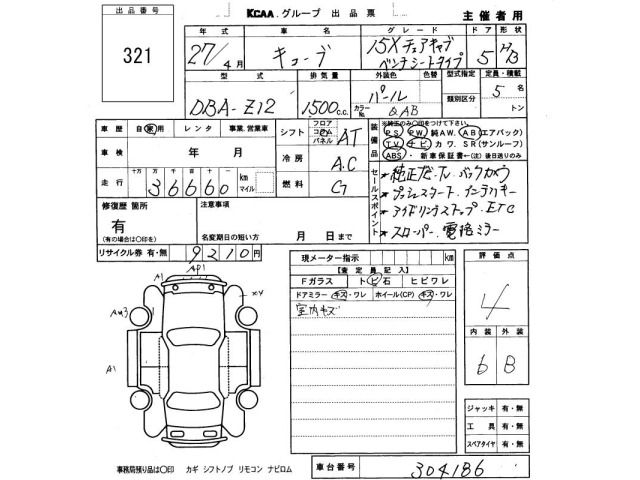 出品番号
321
KCAA.グループ 出品票
主催者用
年式 車名 グレード ドア 形状
27/4月 キューブ 15X チェアキャブ ベンチシートタイプ 5 HB
型式 排気量 外装色 色替 型式指定 定員・積載
DBA-Z12 1500c.c. パール カラーNo QAB 類別区分 5名
トン
車歴 自家用 レンタ 事業、営業車
車検 年 月
走行 十万 万 千 百 十 一 36660 km マイル
シフト フロア コラム パネル AT
冷房 A.C
燃料 G
装備品
※純正のみ○印をつけて下さい。
PS PW 純AW. AB(エアバック)
TV ナビ カワ. SR(サンルーフ)
ABS・新車保証書←(注)後日送りのみ
セールスポイント
*純正ナビ.TV.バックカメラ
*プッシュスタート.インテリキー
*アイドリングストップ.ETC
*スローパー.電格ミラー
修復歴 箇所
有
(有の場合は○印を)
注意事項
名変期日の短い方 月 日まで
リサイクル券 有・無 9210円
現メーター指示 km
【査定員記入】
Fガラス トビ石 ヒビワレ
ドアミラー キズ・ワレ ホイール(CP) キズ・ワレ
室内キズ
評価点
4
内装 外装
6 B
A1 AP1
XX
A1
ジャッキ 有・無
工具 有・無
スペアタイヤ 有・無
事務局預り品は○印 カギ シフトノブ リモコン ナビロム
車台番号 304186